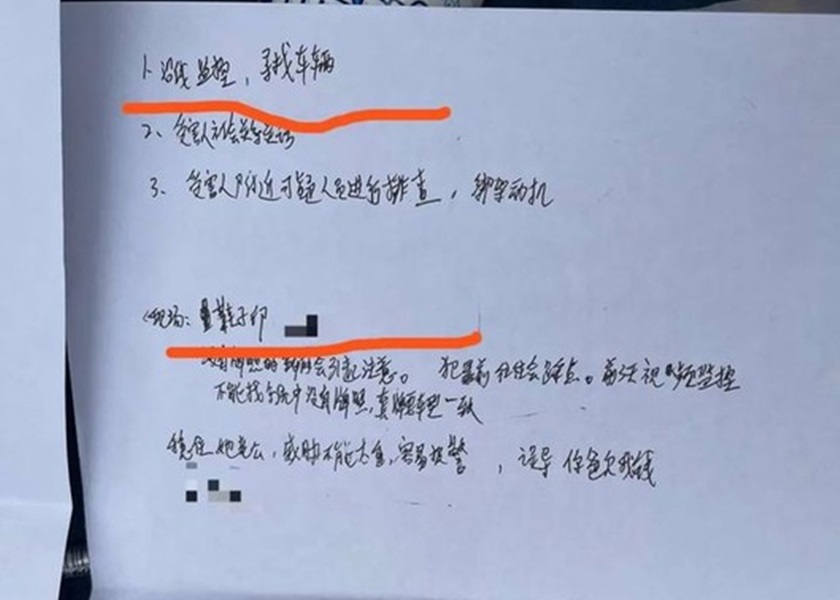 1. 沿线监控，寻找车辆
2、受害人社会关系
3. 受害人附近可疑人员进行排查，绑架动机
现场: 量鞋子印
会引起注意。 犯罪前往往会踩点。 视频监控
不能找 中没有牌照,真牌车型一致
稳住她老公，威胁不能太重,容易报警，误导 你爸欠我钱